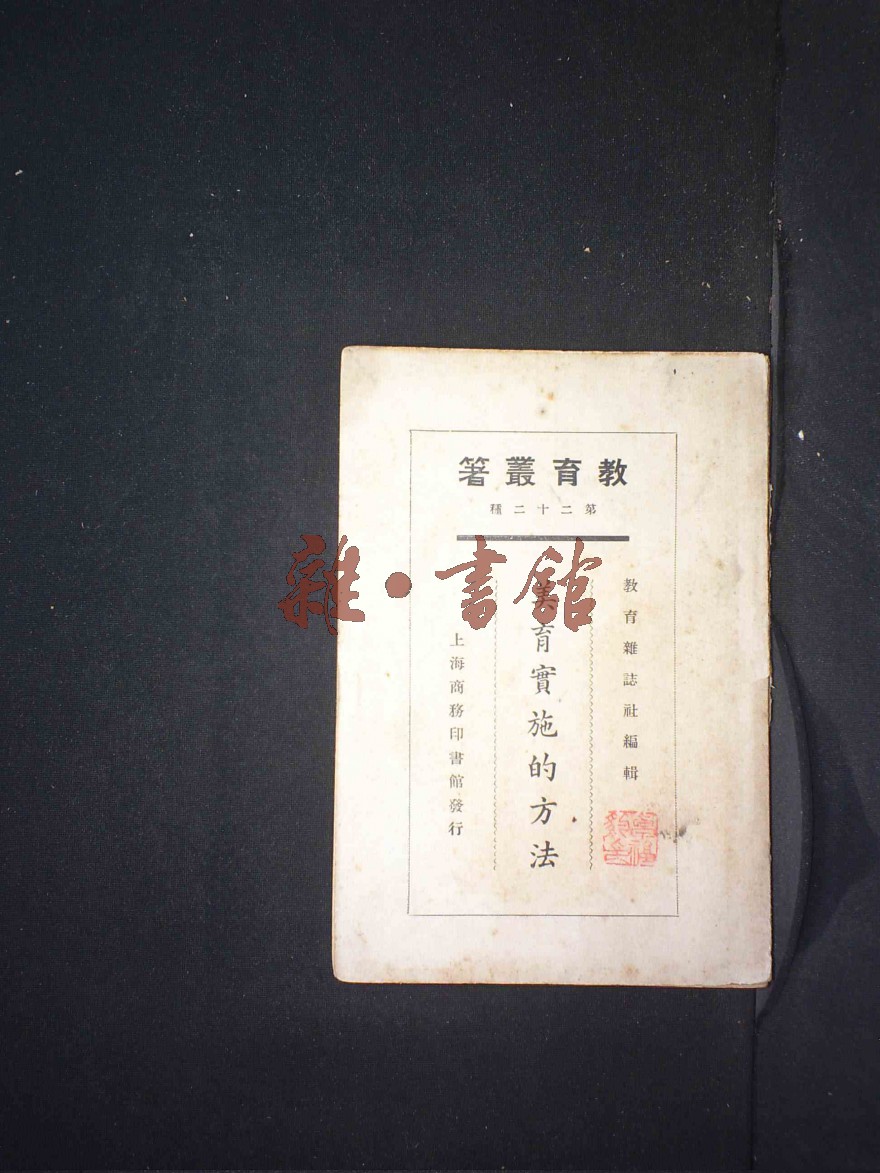 教育叢著
第二十二種
教育雜誌社編輯
美育實施的方法
上海商務印書館發行
雜·書館